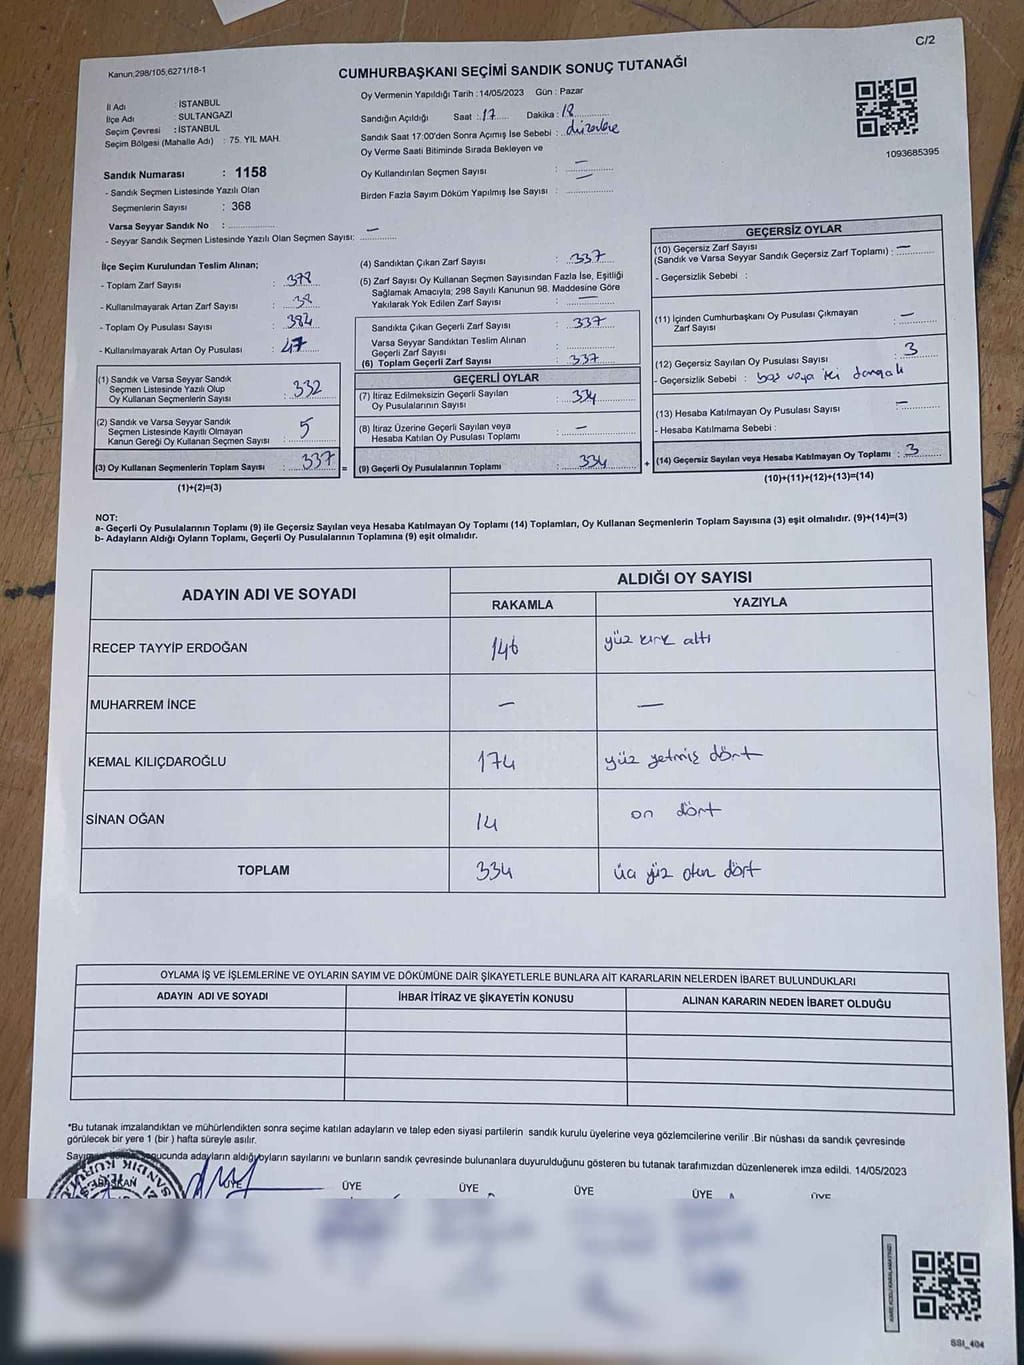 C/2
Kanun,298/105,6271/18-1
CUMHURBAŞKANI SEÇİMİ SANDIK SONUÇ TUTANAĞI
İl Adı : İSTANBUL
İlçe Adı : SULTANGAZİ
Seçim Çevresi : İSTANBUL
Seçim Bölgesi (Mahalle Adı) : 75. YIL MAH.
Oy Vermenin Yapıldığı Tarih : 14/05/2023 Gün : Pazar
Sandığın Açıldığı Saat : 17 Dakika : 18
Sandık Saat 17:00'den Sonra Açımış İse Sebebi :
Oy Verme Saati Bitiminde Sırada Bekleyen ve
Oy Kullandırılan Seçmen Sayısı : —
Birden Fazla Sayım Döküm Yapılmış İse Sayısı : —
1093685395
Sandık Numarası : 1158
- Sandık Seçmen Listesinde Yazılı Olan
Seçmenlerin Sayısı : 368
Varsa Seyyar Sandık No :
- Seyyar Sandık Seçmen Listesinde Yazılı Olan Seçmen Sayısı: —
İlçe Seçim Kurulundan Teslim Alınan;
- Toplam Zarf Sayısı : 378
- Kullanılmayarak Artan Zarf Sayısı :
- Toplam Oy Pusulası Sayısı : 384
- Kullanılmayarak Artan Oy Pusulası : 47
(1) Sandık ve Varsa Seyyar Sandık
Seçmen Listesinde Yazılı Olup
Oy Kullanan Seçmenlerin Sayısı : 332
(2) Sandık ve Varsa Seyyar Sandık
Seçmen Listesinde Kayıtlı Olmayan
Kanun Gereği Oy Kullanan Seçmen Sayısı : 5
(3) Oy Kullanan Seçmenlerin Toplam Sayısı : 337 =
(1)+(2)=(3)
(4) Sandıktan Çıkan Zarf Sayısı : 337
(5) Zarf Sayısı Oy Kullanan Seçmen Sayısından Fazla İse, Eşitliği
Sağlamak Amacıyla; 298 Sayılı Kanunun 98. Maddesine Göre
Yakılarak Yok Edilen Zarf Sayısı : —
Sandıkta Çıkan Geçerli Zarf Sayısı : 337
Varsa Seyyar Sandıktan Teslim Alınan
Geçerli Zarf Sayısı :
(6) Toplam Geçerli Zarf Sayısı : 337
GEÇERLİ OYLAR
(7) İtiraz Edilmeksizin Geçerli Sayılan
Oy Pusulalarının Sayısı : 334
(8) İtiraz Üzerine Geçerli Sayılan veya
Hesaba Katılan Oy Pusulası Toplamı : —
(9) Geçerli Oy Pusulalarının Toplamı : 334 +
GEÇERSİZ OYLAR
(10) Geçersiz Zarf Sayısı
(Sandık ve Varsa Seyyar Sandık Geçersiz Zarf Toplamı) : —
- Geçersizlik Sebebi :
(11) İçinden Cumhurbaşkanı Oy Pusulası Çıkmayan
Zarf Sayısı : —
(12) Geçersiz Sayılan Oy Pusulası Sayısı : 3
- Geçersizlik Sebebi : boş veya iki damgalı
(13) Hesaba Katılmayan Oy Pusulası Sayısı : —
- Hesaba Katılmama Sebebi :
(14) Geçersiz Sayılan veya Hesaba Katılmayan Oy Toplamı : 3
(10)+(11)+(12)+(13)=(14)
NOT:
a- Geçerli Oy Pusulalarının Toplamı (9) ile Geçersiz Sayılan veya Hesaba Katılmayan Oy Toplamı (14) Toplamları, Oy Kullanan Seçmenlerin Toplam Sayısına (3) eşit olmalıdır. (9)+(14)=(3)
b- Adayların Aldığı Oyların Toplamı, Geçerli Oy Pusulalarının Toplamına (9) eşit olmalıdır.
ADAYIN ADI VE SOYADI ALDIĞI OY SAYISI
RAKAMLA YAZIYLA
RECEP TAYYİP ERDOĞAN 146 yüz kırk altı
MUHARREM İNCE — —
KEMAL KILIÇDAROĞLU 174 yüz yetmiş dört
SİNAN OĞAN 14 on dört
TOPLAM 334 üç yüz otuz dört
OYLAMA İŞ VE İŞLEMLERİNE VE OYLARIN SAYIM VE DÖKÜMÜNE DAİR ŞİKAYETLERLE BUNLARA AİT KARARLARIN NELERDEN İBARET BULUNDUKLARI
ADAYIN ADI VE SOYADI İHBAR İTİRAZ VE ŞİKAYETİN KONUSU ALINAN KARARIN NEDEN İBARET OLDUĞU
*Bu tutanak imzalandıktan ve mühürlendikten sonra seçime katılan adayların ve talep eden siyasi partilerin sandık kurulu üyelerine veya gözlemcilerine verilir .Bir nüshası da sandık çevresinde
görülecek bir yere 1 (bir ) hafta süreyle asılır.
sonucunda adayların aldığı oyların sayılarını ve bunların sandık çevresinde bulunanlara duyurulduğunu gösteren bu tutanak tarafımızdan düzenlenerek imza edildi. 14/05/2023
BAŞKAN ÜYE ÜYE ÜYE ÜYE ÜYE ÜYE
SANDIK KURULU
SSI_404